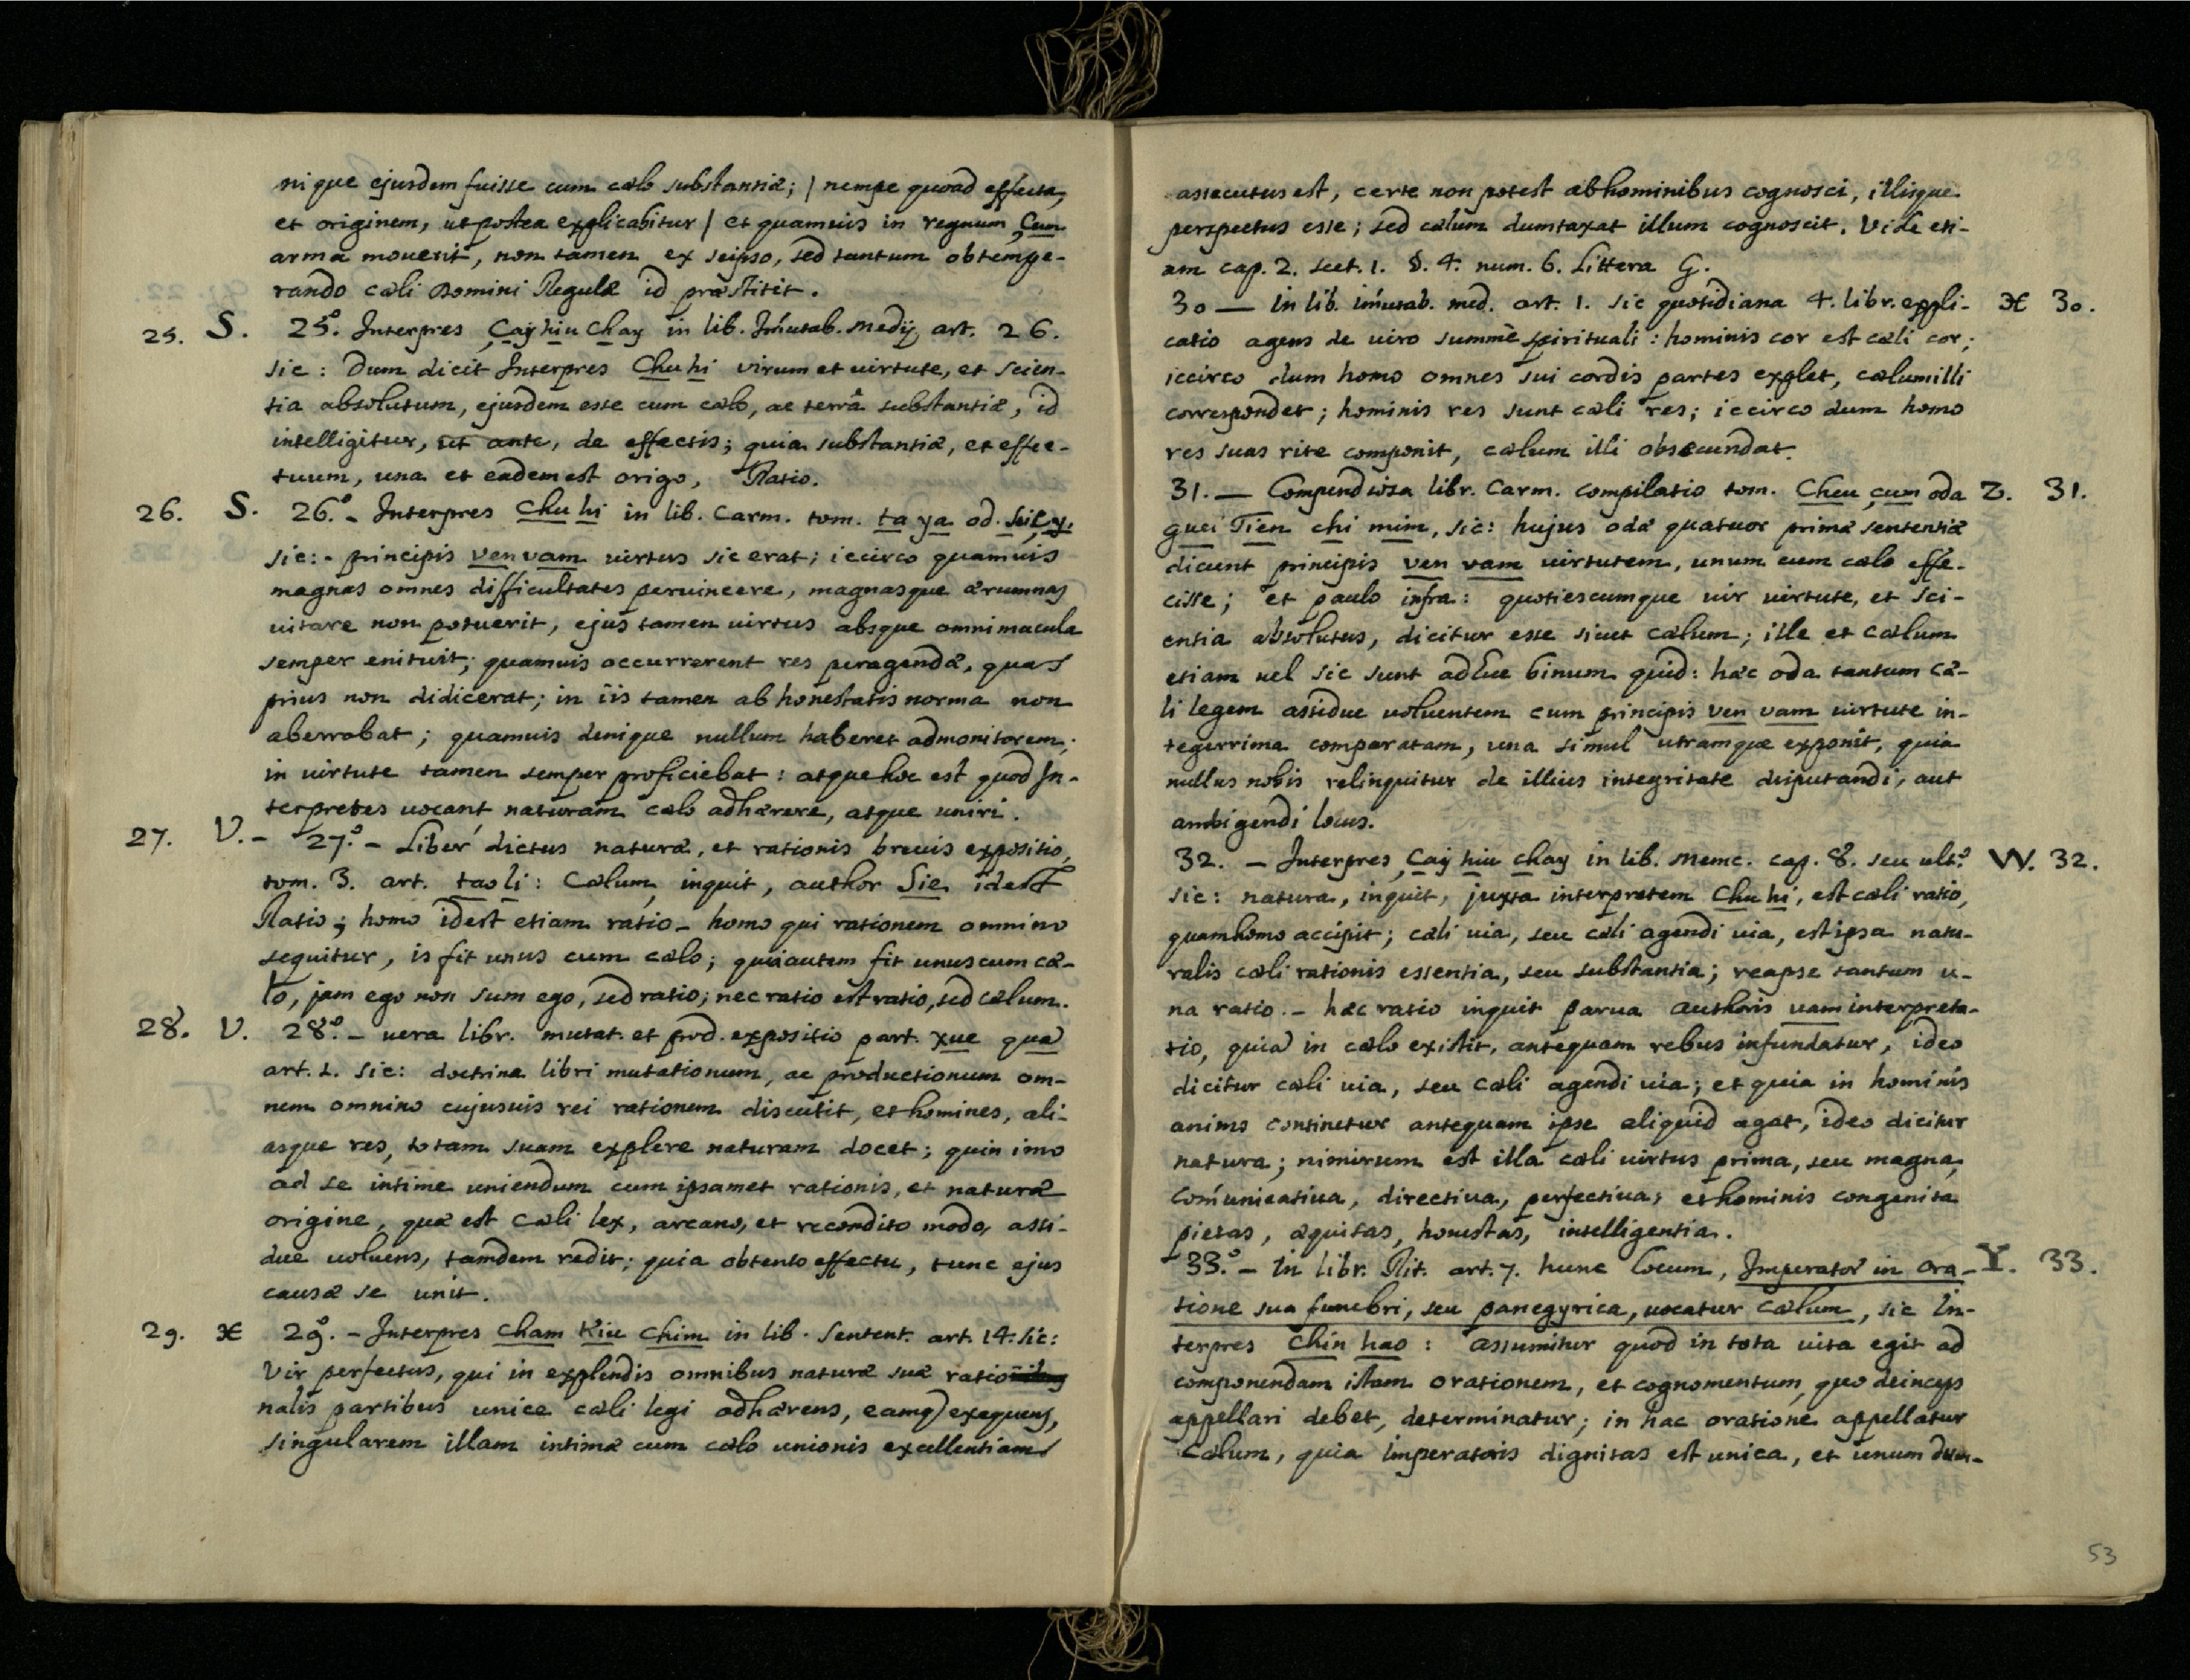 nique ejusdem fuisse cum cælo substantiæ; / nempe quoad effecta,
et originem, ut postea explicabitur / et quamuis in regnum çum
arma mouerit, non tamen ex seipso, sed tantum obtempe-
rando cæli Domini Regulæ id præstitit.
25. S. 25.º Interpres Çay hiu Chay in lib. Im̃utab. Medij art. 26.
sic: Dum dicit Interpres Chu hi virum et uirtute, et scien-
tia absolutum, ejusdem esse cum cælo, ac terrâ substantiæ, id
intelligitur, ut ante, de effectis; quia substantiæ, et effec-
tuum, una et eadem est origo, Ratio.
26. S. 26.º - Interpres Chu hi in lib. Carm. tom. ta ya od.
sic: - principis ven vam uirtus sic erat; iccirco quamuis
magnas omnes difficultates peruincere, magnasque ærumnas
uitare non potuerit, ejus tamen uirtus absque omni macula
semper enituit; quamuis occurrerent res peragendæ, quas
prius non didicerat; in iis tamen ab honestatis norma non
aberrabat; quamuis denique nullum haberet admonitorem;
in uirtute tamen semper proficiebat: atque hoc est quod In-
terpretes uocant naturam cælo adhærere, atque uniri.
27. V. - 27.º - Liber dictus naturæ, et rationis breuis expositio,
tom. 3. art. tao li: Cælum, inquit, author Sie idest
Ratio; homo idest etiam ratio - homo qui rationem omnino
sequitur, is fit unus cum cælo; qui autem fit unus cum cæ-
lo, jam ego non sum ego, sed ratio; nec ratio est ratio, sed cælum.
28. V. 28.º - uera libr. mutat. et prod. expositio part. xue qua
art. 1. sic: doctrina libri mutationum, ac productionum om-
nem omnino cujusuis rei rationem discutit, et homines, ali-
asque res, totam suam explere naturam docet; quin imo
ad se intime uniendum cum ipsamet rationis, et naturæ
origine, quæ est Cæli lex, arcano, et recondito modo, assi-
due uoluens, tamdem redit; quia obtento effectu, tunc ejus
causæ se unit.
29. X 29.º - Interpres Cham Kiu Chim in lib. Sentent. art. 14. sic:
Vir perfectus, qui in explendis omnibus naturæ suæ ratio
nalis partibus unice cæli legi adhærens, eamq) exequens,
singularem illam intimæ cum cælo unionis excellentiam
assecutus est, certe non potest ab hominibus cognosci, illisque
perspectus esse; sed cælum dumtaxat illum cognoscit. Vide eti-
am cap. 2. sect. 1. §. 4. num. 6. Littera G.
30 — In lib. im̃utab. med. art. 1. sic quotidiana 4. libr. expli- X 30.
catio agens de uiro summè spirituali: hominis cor est cæli cor;
iccirco dum homo omnes sui cordis partes explet, cælum illi
correspondet; hominis res sunt cæli res; iccirco dum homo
res suas rite componit, cælum illi obsecundat.
31. — Compendiosa libr. Carm. compilatio tom. Cheu çum oda Z. 31.
guei Tien chi mim, sic: hujus odæ quatuor primæ sententiæ
dicunt principis ven vam uirtutem, unum cum cælo effe-
cisse; et paulo infra: quotiescumque uir uirtute, et sci-
entia absolutus, dicitur esse sicut cælum; ille et cælum
etiam uel sic sunt adhuc binum quid: hæc oda tantum cæ-
li legem assidue uoluentem cum principis ven vam uirtute in-
tegerrima comparatam, una simul utramque exponit, quia
nullus nobis relinquitur de illius integritate disputandi, aut
ambigendi locus.
32. — Interpres Çay hiu chay in lib. Menc. cap. 8. seu ult.º W. 32.
sic: natura, inquit, juxta interpretem Chu hi, est cæli ratio,
quam homo accipit; cæli uia, seu cæli agendi uia, est ipsa natu-
ralis cæli rationis essentia, seu substantia; reapse tantum u-
na ratio. - hæc ratio inquit parua authoris uam interpreta-
tio, quia in cælo existit, antequam rebus infundatur, ideo
dicitur cæli uia, seu cæli agendi uia; et quia in hominis
animo continetur antequam ipse aliquid agat, ideo dicitur
natura; nimirum est illa cæli uirtus prima, seu magna,
com̃unicatiua, directiua, perfectiua; et hominis congenita
pietas, æquitas, honestas, intelligentia.
33.º - In libr. Rit. art. 7. hunc locum, Imperator in ora- Y. 33.
tione sua funebri, seu panegyrica, uocatur cælum, sic In-
terpres Chin hao: assumitur quod in tota uita egit ad
componendam istam orationem, et cognomentum, quo deinceps
appellari debet, determinatur; in hac oratione appellatur
Cælum, quia imperatoris dignitas est unica, et unum dum-
53